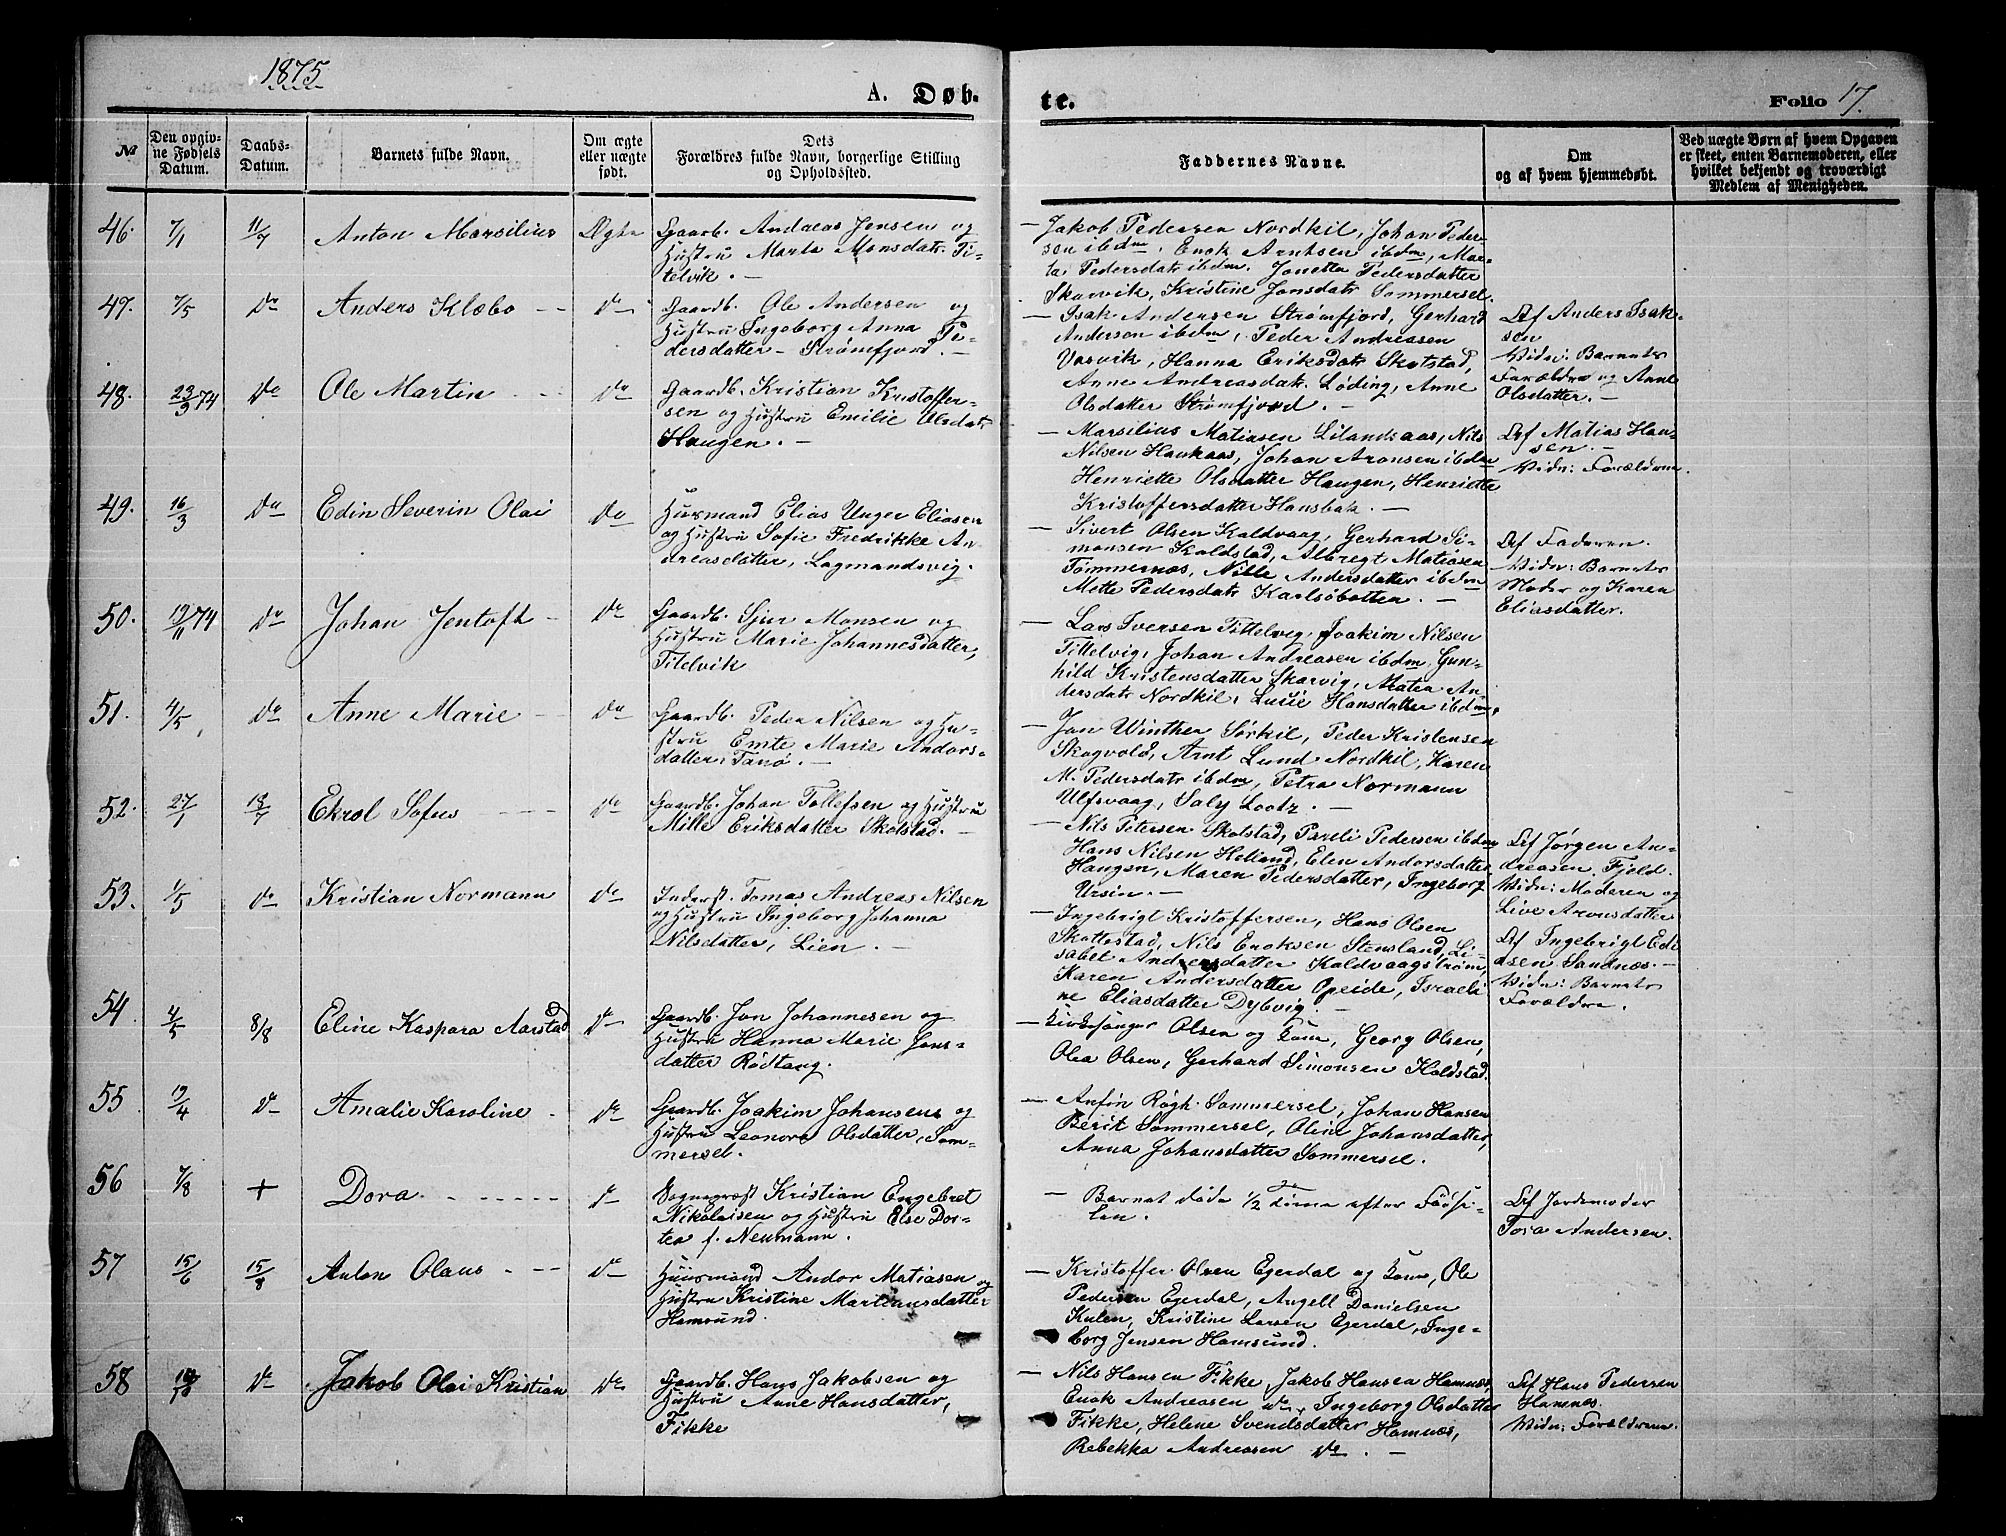 1875
A. Døb-
te.
Folio 17.
No
Den opgiv-
ne Fødsels
Datum.
Daabs-
Datum.
Barnets fulde Navn.
Om ægte
eller uægte
født.
Dets
Forældres fulde Navn, borgerlige Stilling
og Opholdssted.
Faddernes Navne.
Om
og af hvem hjemmedøbt.
Ved uægte Børn af hvem Opgaven
er skeet, enten Barnemoderen, eller
hvilket bekjendt og troværdigt
Medlem af Menigheden.
46. 7/1 11/7 Anton Marsilius Ægte
Gaardb. Andreas Jensen og
Hustru Marta Monsdatr. Ti-
telvik. —
— Jakob Pedersen Nordkil, Johan Peder-
sen ibdm, Enok Arntsen ibdm, Mar-
ta Pedersdatr ibdm. Jonetta Pedersdatter
Skarvik, Kristine Jonsdatr Sommersel.
47. 7/5 Do Anders Klæbo — Do
Gaardb. Ole Andersen og
Hustru Ingeborg Anna Pe-
dersdatter — Strømfjord. —
— Isak Andersen Strømfjord, Gerhard
Andersen ibdm, Peder Andreasen
Vasvik, Hanna Eriksdatr Skotstad,
Anne Andreasdatr. Løding, Anne
Olsdatter Strømfjord. —
Af Anders Isak-
sen
Vidn: Barnets
Forældre og Anne
Olsdatter. —
48. 23/9 74 Do Ole Martin Do
Gaardb. Kristian Kristoffer-
sen og Hustru Emilie Olsdatr
Haugen. —
— Marsilius Matiasen Lilandsaas, Nils
Nilsen Haukaas, Johan Aronsen ibdm
Henriette Olsdatter Haugen, Henriette
Kristoffersdatter Hansbak. —
Af Matias Han-
sen.
Vidn: Forældrene.
49. 16/3 Do Edin Severin Olai Do
Husmand Elias Unger Eliasen
og Hustru Sofie Fredrikke An-
dreasdatter, Lagmandsvig.
— Sivert Olsen Kaldvaag, Gerhard Si-
monsen Kaldstad, Albregt Matiasen
Tømmernæs, Nille Andersdatter ibdm
Mette Pedersdatr Karlsøbotten. —
Af Faderen.
Vidn: Barnets
Moder og Karen
Eliasdatter.
50. 19/11 74 Do Johan Jentoft — Do
Gaardb. Sjur Monsen og
Hustru Marie Johannesdatter,
Titelvik
— Lars Iversen Tittelvig, Joakim Nilsen
Tittelvig, Johan Andreasen ibdm, Gun-
hild Kristensdatter Skarvig, Matea An-
dersdatr Nordkil, Lusie Hansdatter ibdm,
51. 4/5 Do Anne Marie — Do
Gaardb. Peder Nilsen og Hu-
stru Emte Marie Andors-
datter, Tanø. —
— Jon Winther Sørkil, Peder Kristensen
Skogvold, Arnt Lund Nordkil, Karen
M. Pedersdatr ibdm, Petra Normann
Ulfsvaag, Saly Lootz. —
52. 27/1 18/7 Ekrol Sofus Do
Gaardb. Johan Tollefsen og Hustru
Mille Eriksdatter Skotstad. —
— Nils Petersen Skotstad, Pareli Pedersen ibdm
Hans Nilsen Heliand, Elen Andorsdatter
Haugen, Maren Pedersdatter, Ingeborg
Ursin. —
Af Jørgen An-
dreasen Fjeld.
Vidn: Moderen og
Live Aronsdatter
53. 1/5 Do Kristian Normann Do
Inderst. Tomas Andreas Nilsen
og Hustru Ingeborg Johanna
Nilsdatter, Lien. —
— Ingebrigt Kristoffersen, Hans Olsen
Skottestad, Nils Enoksen Stensland, Li-
sabet Andersdatter Kaldvaagstrøm,
Karen Andersdatter Opeide, Israeli-
ne Eliasdatter Dybvig. —
Af Ingebrigt Edi-
asen Sandnæs. —
Vidn: Barnets
Forældre.
54. 4/5 8/8 Eline Kaspara Aarstad Do
Gaardb. Jon Johannesen og
Hustru Hanna Marie Jons-
datter Rødtang.
— Kirkesanger Olsen og Kone, Georg Olsen,
Olea Olsen, Gerhard Simonsen Kaldstad.
55 19/4 Do Amalie Karoline Do
Gaardb. Joakim Johansen og
Hustru Leonora Olsdatter, Som-
mersel.
— Anfin Røgh Sommersel, Johan Hansen
Berit Sommersel, Oline Johansdatter,
Anna Johansdatter Sommersel.
56 7/8 + Dora Do
Sognepræst Kristian Engebret
Nikolaisen og Hustru Else Dor-
tea f. Neumann.
— Barnet døde 1/2 Time efter Fødse-
len.
Af Jordemoder
Tora Andersen.
57 15/6 15/8 Anton Olaus Do
Husmand Andor Matiasen og
Hustru Kristine Martinusdatter
Hamsund.
— Kristoffer Olsen Egerdal og Kone, Ole
Pedersen Egerdal, Angell Danielsen
Kulen, Kristine Larsen Egerdal, Inge-
borg Jensen Hamsund.
58 Do Jakob Olai Kristian Do
Gaardb. Hans Jakobsen og
Hustru Anne Hansdatter,
Fikke
— Nils Hansen Fikke, Jakob Hansen Hamnæs,
Enok Andreasen Do, Ingeborg Olsdatter
Fikke, Helene Svendsdatter Hamnæs,
Rebekka Andreasen Do. —
Af Hans Pedersen
Hamnæs.
Vidn: Forældrene.